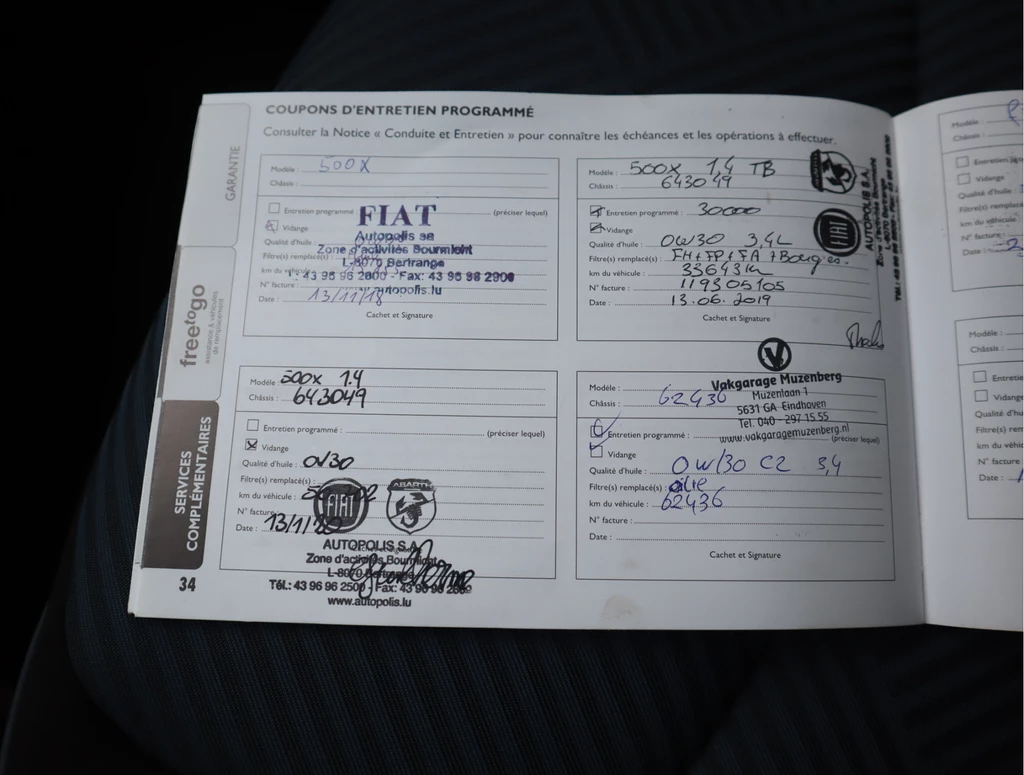 COUPONS D'ENTRETIEN PROGRAMMÉ
Consulter la Notice « Conduite et Entretien » pour connaître les échéances et les opérations à effectuer.
GARANTIE
freetogo
assistance & véhicules
de remplacement
SERVICES
COMPLÉMENTAIRES
34
Modèle : 500X
Châssis :
Entretien programmé : (préciser lequel)
Vidange
Qualité d'huile :
Filtre(s) remplacé(s) :
km du véhicule :
N° facture :
Date : 13/11/18
Cachet et Signature
FIAT
Autopolis sa
Zone d'activités Bourmicht
L-8070 Bertrange
T. 43 96 96 2600 - Fax: 43 96 96 2900
autopolis.lu
Modèle : 500X 1.4 TB
Châssis : 643049
Entretien programmé : 30000
Vidange
Qualité d'huile : 0W30 3,4L
Filtre(s) remplacé(s) : FH+FP+FA+Bougies
km du véhicule : 33643 Km
N° facture : 119305105
Date : 13.06.2019
Cachet et Signature
ABARTH
FIAT
AUTOPOLIS S.A.
Modèle : 500X 1.4
Châssis : 643049
Entretien programmé : (préciser lequel)
Vidange
Qualité d'huile : 0W30
Filtre(s) remplacé(s) :
km du véhicule :
N° facture :
Date : 13/1/20
FIAT
ABARTH
AUTOPOLIS S.A.
Zone d'activités Bourmicht
L-8070 Bertrange
Tél.: 43 96 96 2500 Fax: 43 96 96
www.autopolis.lu
Modèle :
Châssis : 62436
Entretien programmé : (préciser lequel)
Vidange
Qualité d'huile : 0W/30 C2 3,4
Filtre(s) remplacé(s) : olie
km du véhicule : 62436
N° facture :
Date :
Cachet et Signature
V
Vakgarage Muzenberg
Muzenlaan 1
5631 GA Eindhoven
Tel. 040 - 297 15 55
www.vakgaragemuzenberg.nl
Modèle :
Châssis :
Vidange
Qualité d'huile
N° facture
Date :
Modèle :
Châssis :
Vidange
N° facture
Date :